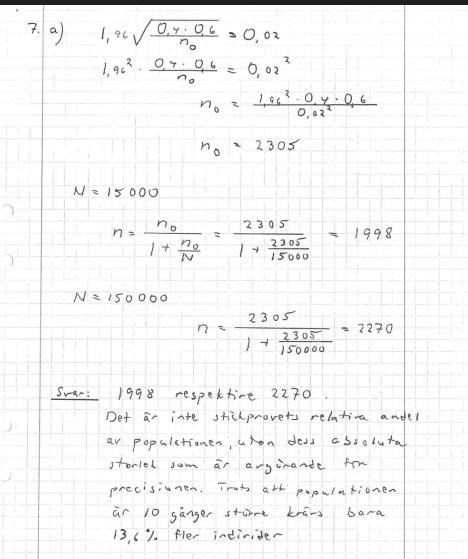 7. a) 1,96 √(0,4 · 0,6 / n₀) = 0,02
1,96² · 0,4 · 0,6 / n₀ = 0,02²
n₀ = 1,96² · 0,4 · 0,6 / 0,02²
n₀ = 2305
N = 15000
n = n₀ / (1 + n₀/N) = 2305 / (1 + 2305/15000) = 1998
N = 150000
n = 2305 / (1 + 2305/150000) = 2270
Svar: 1998 respektive 2270.
Det är inte stickprovets relativa andel
av populationen, utan dess absoluta
storlek som är avgörande för
precisionen. Trots att populationen
är 10 gånger större krävs bara
13,6% fler individer